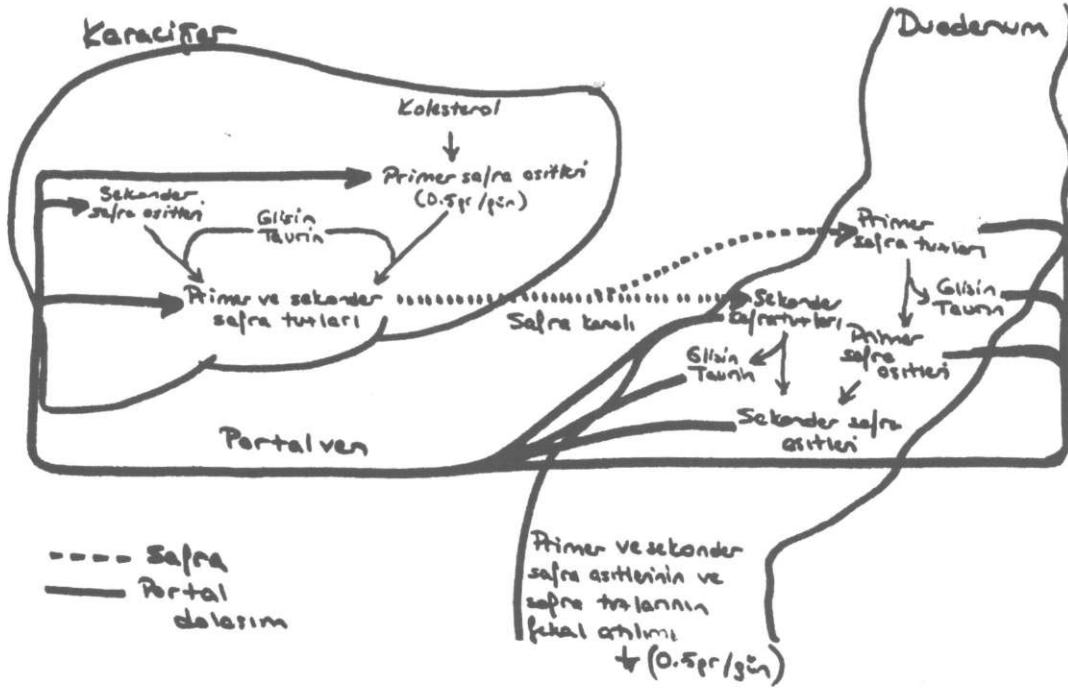 Karaciğer
Duodenum
Kolesterol
Primer safra asitleri
(0.5gr/gün)
Sekonder
safra asitleri
Glisin
Taurin
Primer ve sekonder
safra tuzları
Safra kanalı
Primer
safra tuzları
Glisin
Taurin
Sekonder
safra tuzları
Primer
safra
asitleri
Glisin
Taurin
Sekonder safra
asitleri
Portal ven
Safra
Portal
dolaşım
Primer ve sekonder
safra asitlerinin ve
safra tuzlarının
fekal atılımı
(0.5gr/gün)